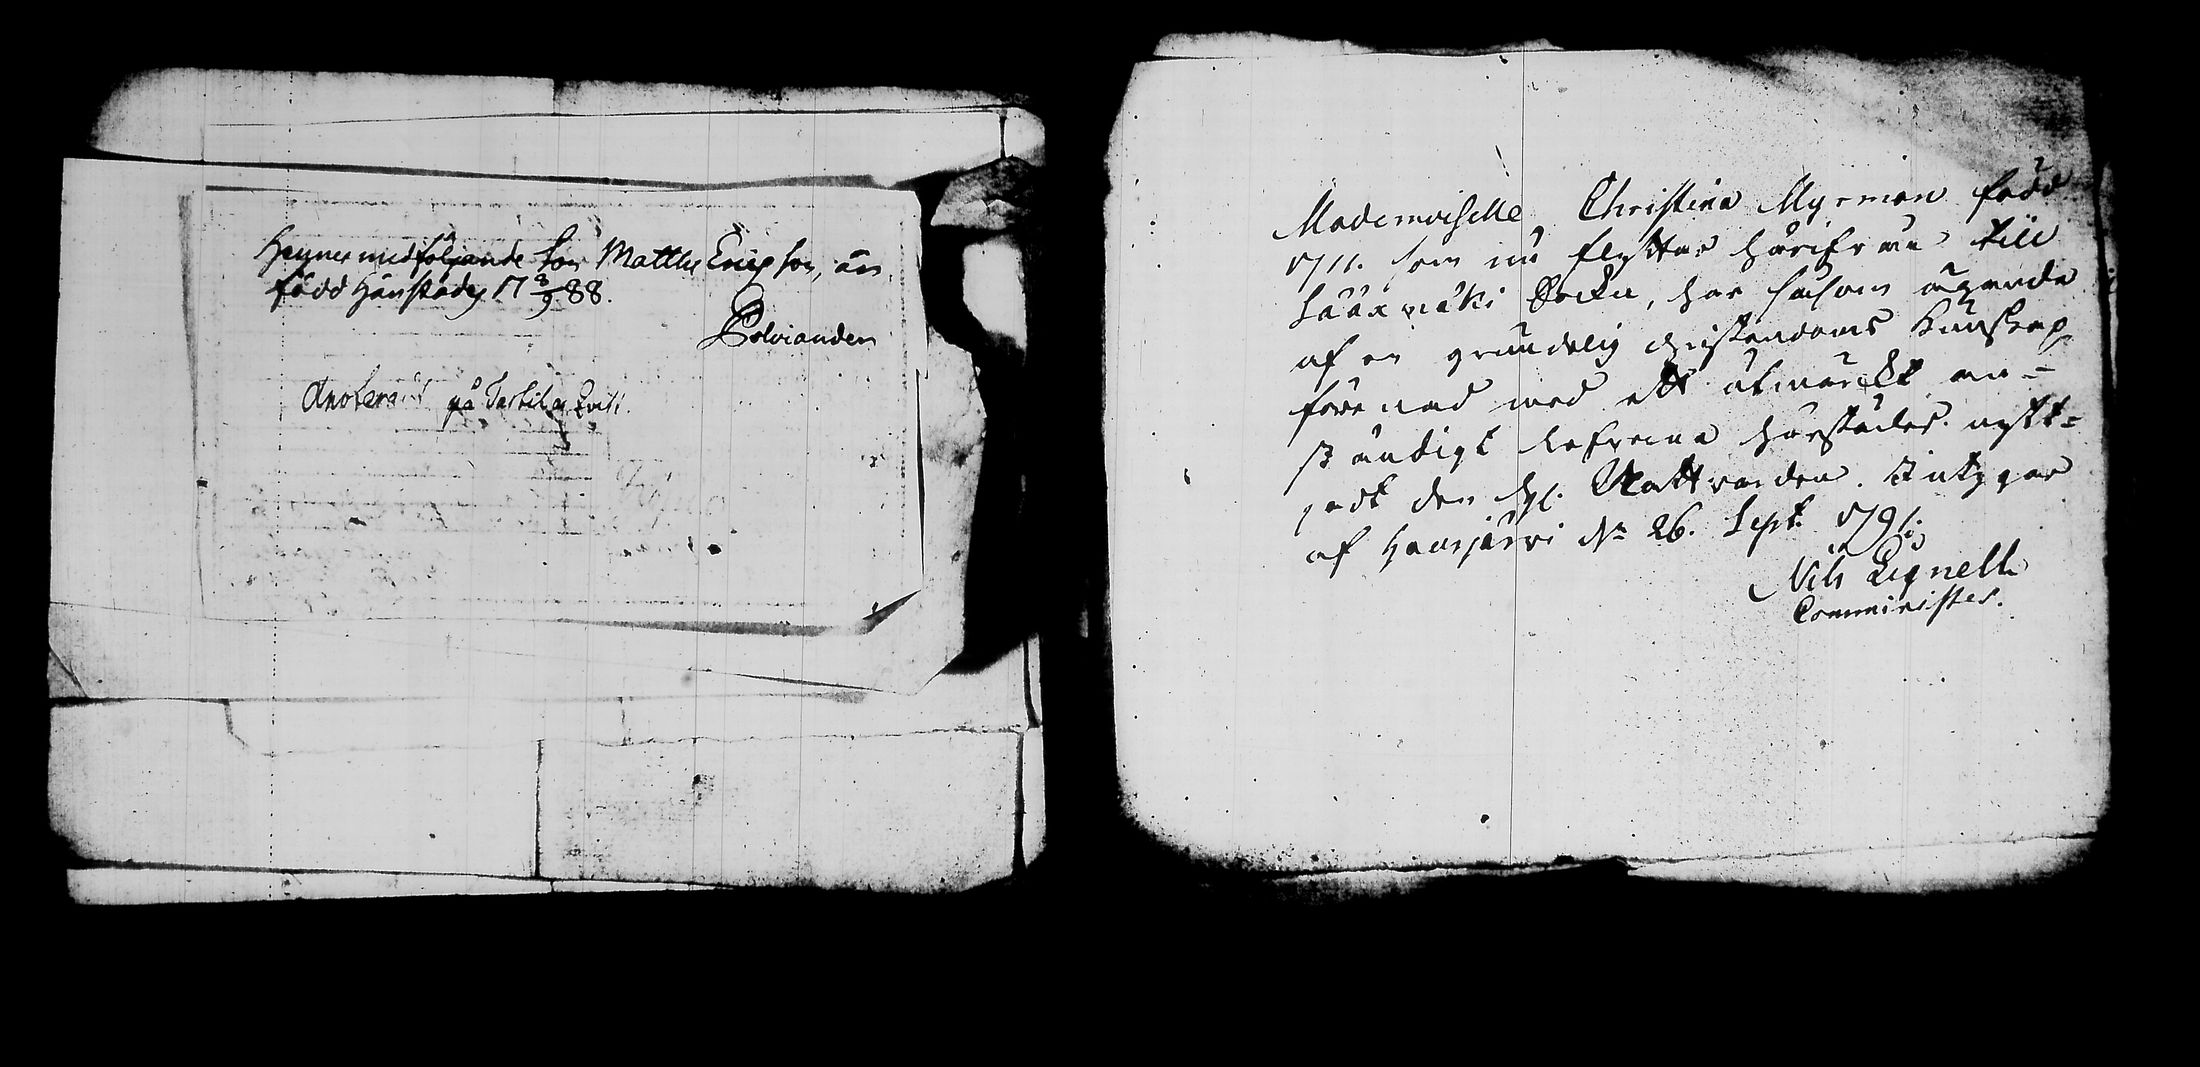 Hennes medföljande Son Matths Ericsson, än
född härstädes 17 3/9 88.
Polviander
Anoterad på Tartila Qvist.
Mademoiselle Christina Myrman född
1711. som nu flyttar härifrån till
Sääxmäki Socken, har såsom ägande
af en grundelig christendoms Kunskap
förenad med ett utmärkt an-
ständigt lefverne härstädes nytt-
jadt den hel. Nattvarden. Intygar
af Hausjärvi d. 26. Sept. 1791.
Nils Lignell
Comminister.